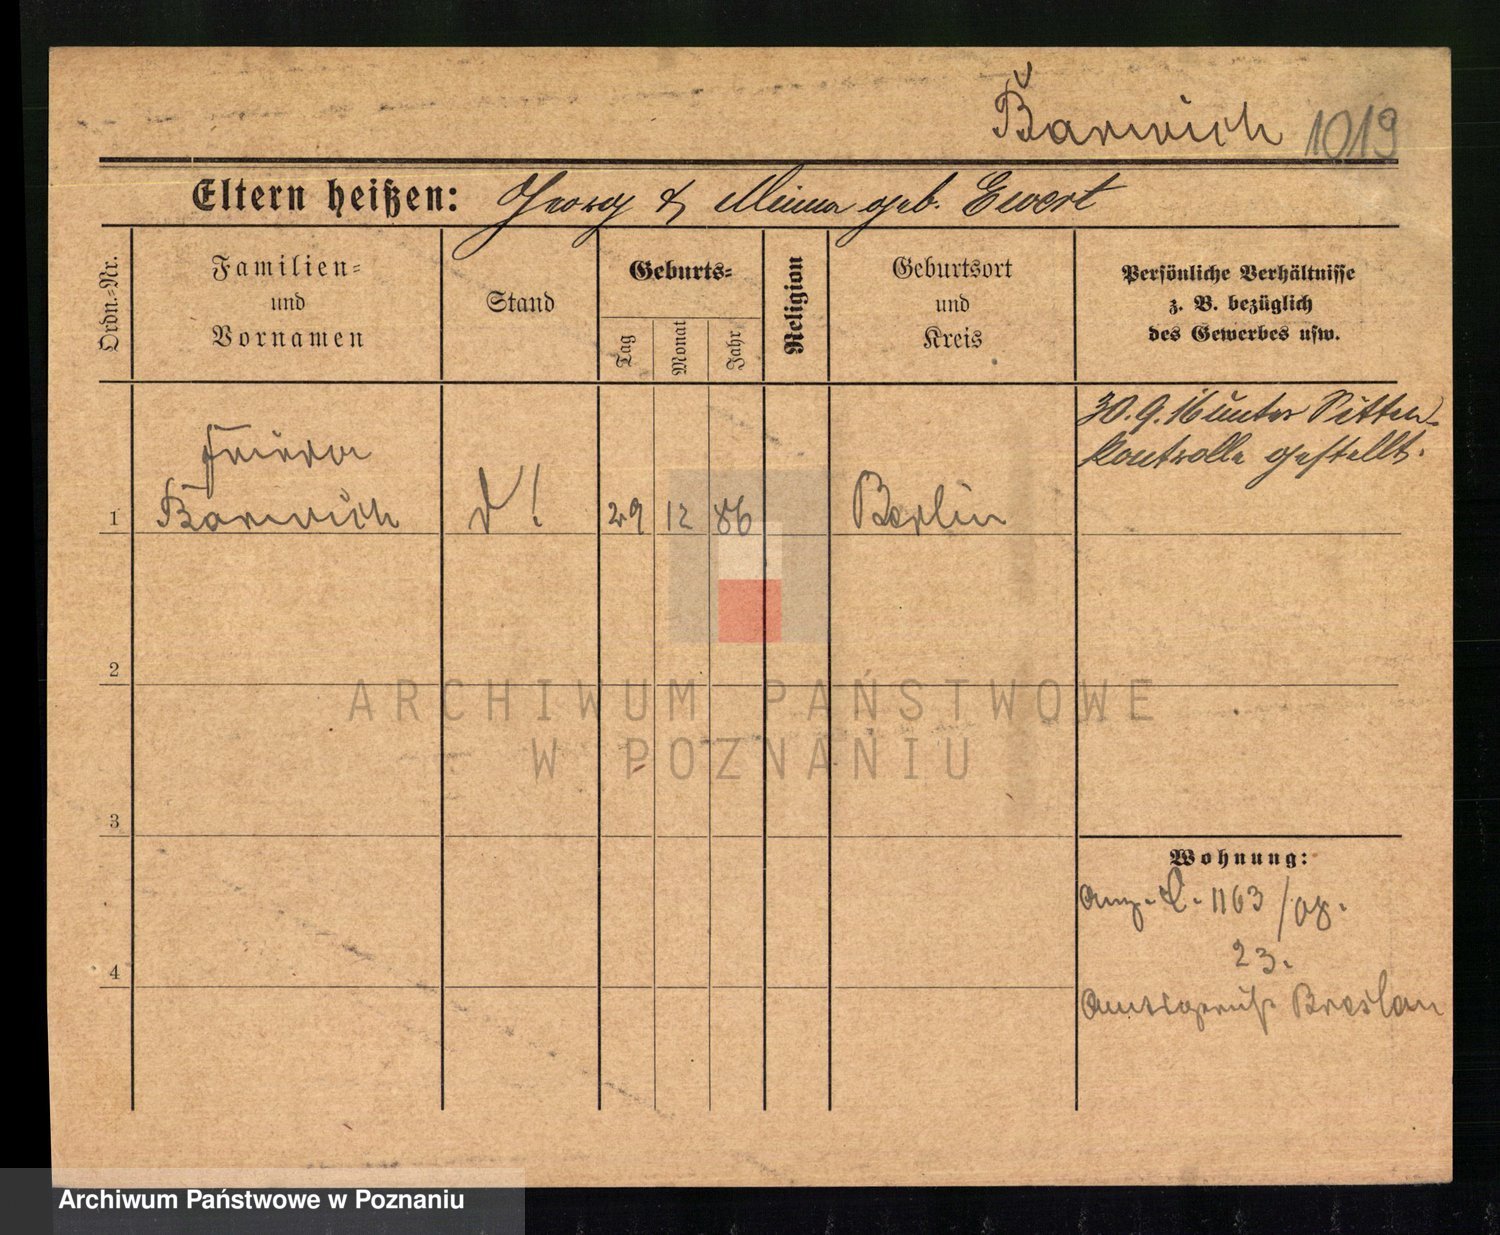 Barwich 1019
Eltern heißen: Georg & Minna geb. Ewert
Ordn.-Nr.
Familien-
und
Vornamen
Stand
Geburts-
Tag
Monat
Jahr
Religion
Geburtsort
und
Kreis
Persönliche Verhältnisse
z. B. bezüglich
des Gewerbes usw.
30.9.16 unter Sitten-
kontrolle gestellt.
Frieda
1 Barwich 29 12 86 Berlin
2
ARCHIWUM PAŃSTWOWE
W POZNANIU
3
Wohnung:
1163
23.
4
Breslau
Archiwum Państwowe w Poznaniu